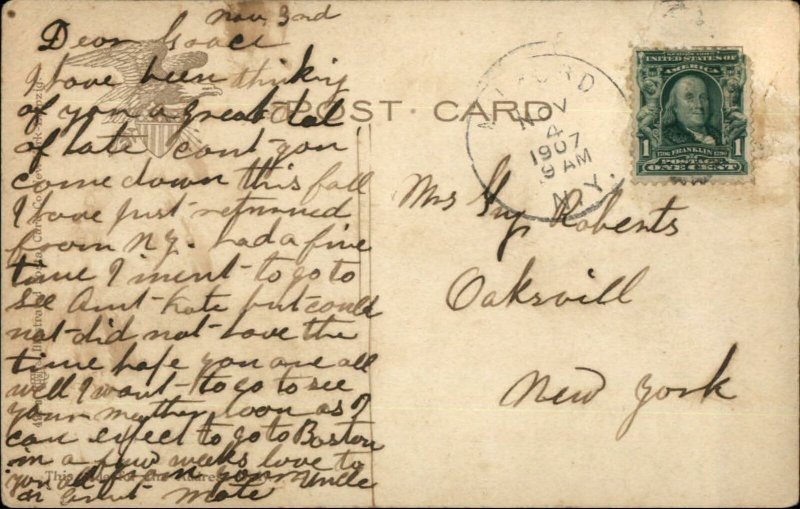 Nov, 3nd
Dear Grace
I have been thinking
of you a great deal
of late cant you
come down this fall
I have just returned
from N.Y. had a fine
time I ment to go to
see Aunt Kate but could
not did not have the
time hope you are all
well I want to go to see
your mother soon as I
can expect to go to Boston
in a few weeks love to
you all from your Uncle
an Aunt Mate
POST CARD
NOV
4
1907
9 AM
N.Y.
UNITED STATES OF
AMERICA
1 FRANKLIN 1
POSTAGE
ONE CENT
Mrs Guy Roberts
Oaksvill
New York